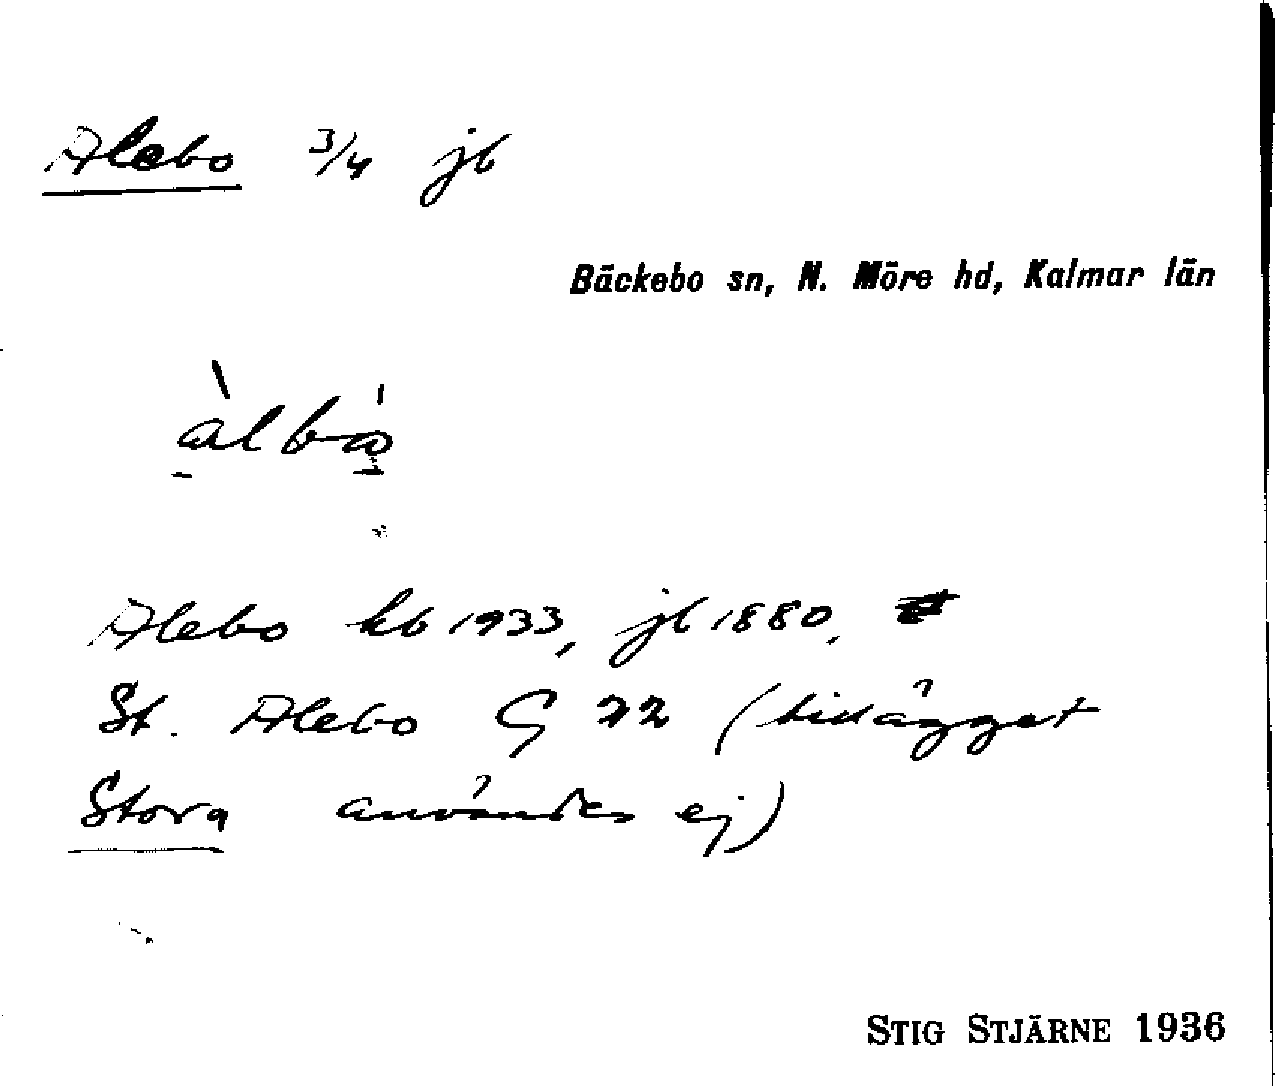 Alebo 3/4 jb
Bäckebo sn, N. Möre hd, Kalmar län
àlbo
Alebo kb 1933, jb 1880.
St. Alebo G 22 (tillägget
Stora användes ej)
STIG STJÄRNE 1936